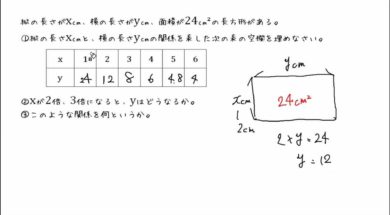 縦の長さがxcm、横の長さがycm、面積が24cm²の長方形がある。
①縦の長さxcmと、横の長さycmの関係を表した次の表の空欄を埋めなさい。
x 1 2 3 4 5 6
y 24 12 8 6 4.8 4
②xが2倍、3倍になると、yはどうなるか。
③このような関係を何というか。
ycm
xcm
24cm²
1
2cm
2×y=24
y=12